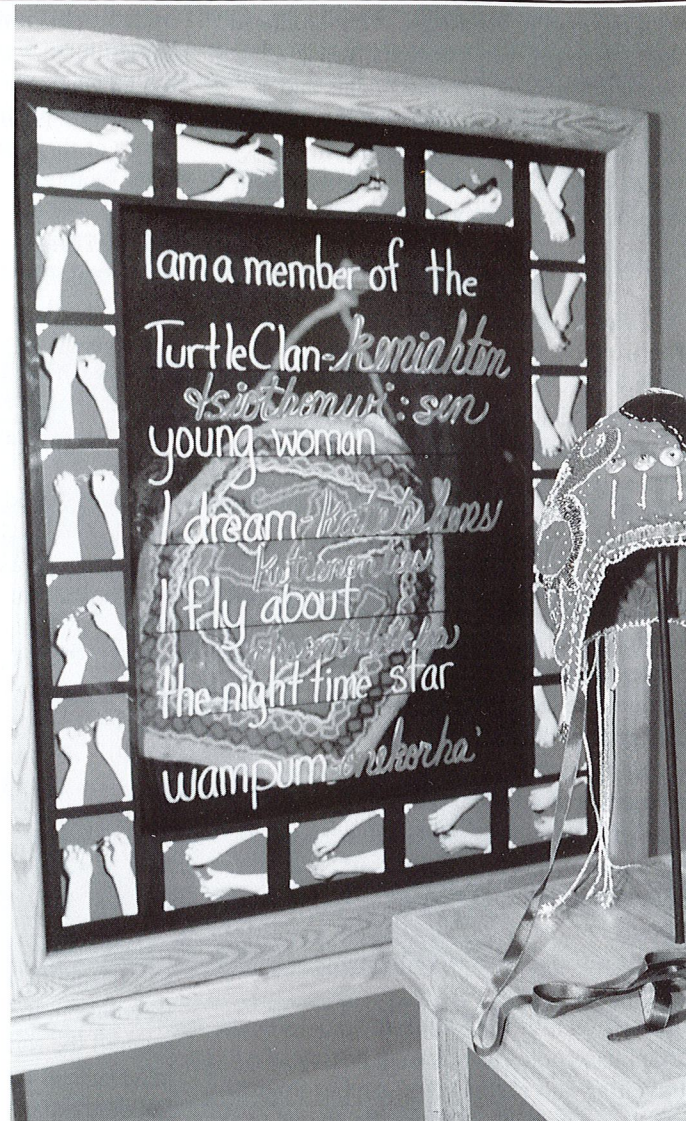 I am a member of the
Turtle Clan- keniahten
tsiothonwi: sen
young woman
I dream-
I fly about
the night time star
wampum- onekorha'